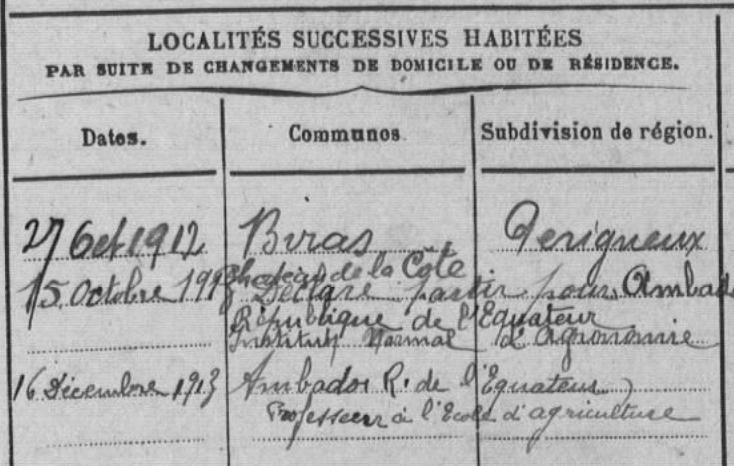 LOCALITÉS SUCCESSIVES HABITÉES
PAR SUITE DE CHANGEMENTS DE DOMICILE OU DE RÉSIDENCE.
Dates. Communes Subdivision de région.
27 Oct 1912 Biras Perigueux
Chateau de la Côte
15 Octobre 1913 Déclare partir pour Ambado
République de l'Equateur
Institut Normal d'Agronomie
16 Décembre 1913 Ambador R. de l'Equateur
Professeur à l'Ecole d'agriculture